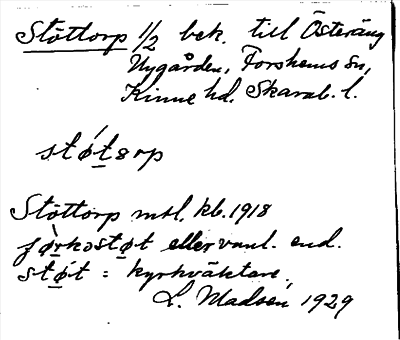 Stöttorp 1/2 bek. till Österäng
Nygården, Forshems sn,
Kinne hd. Skarab. l.
støt́sorp
Stöttorp mtl. kb. 1918
førkostøt eller vanl. end.
støt = kyrkväktare,
L. Madsén 1929